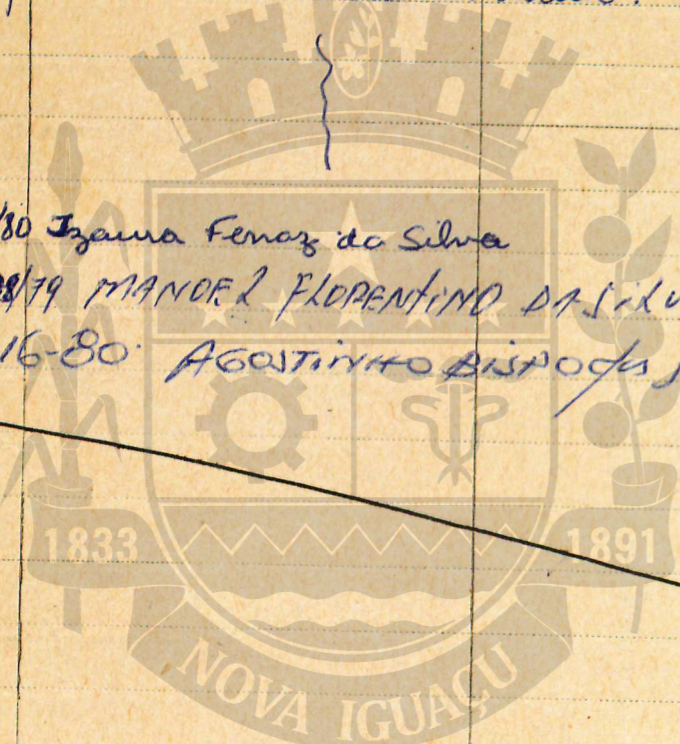 /80 Izaura Ferraz da Silva
98/79 MANOEL FLORENTINO DA SILV
16-80 AGOSTINHO BISPO dos S
1833 1891
NOVA IGUAÇU